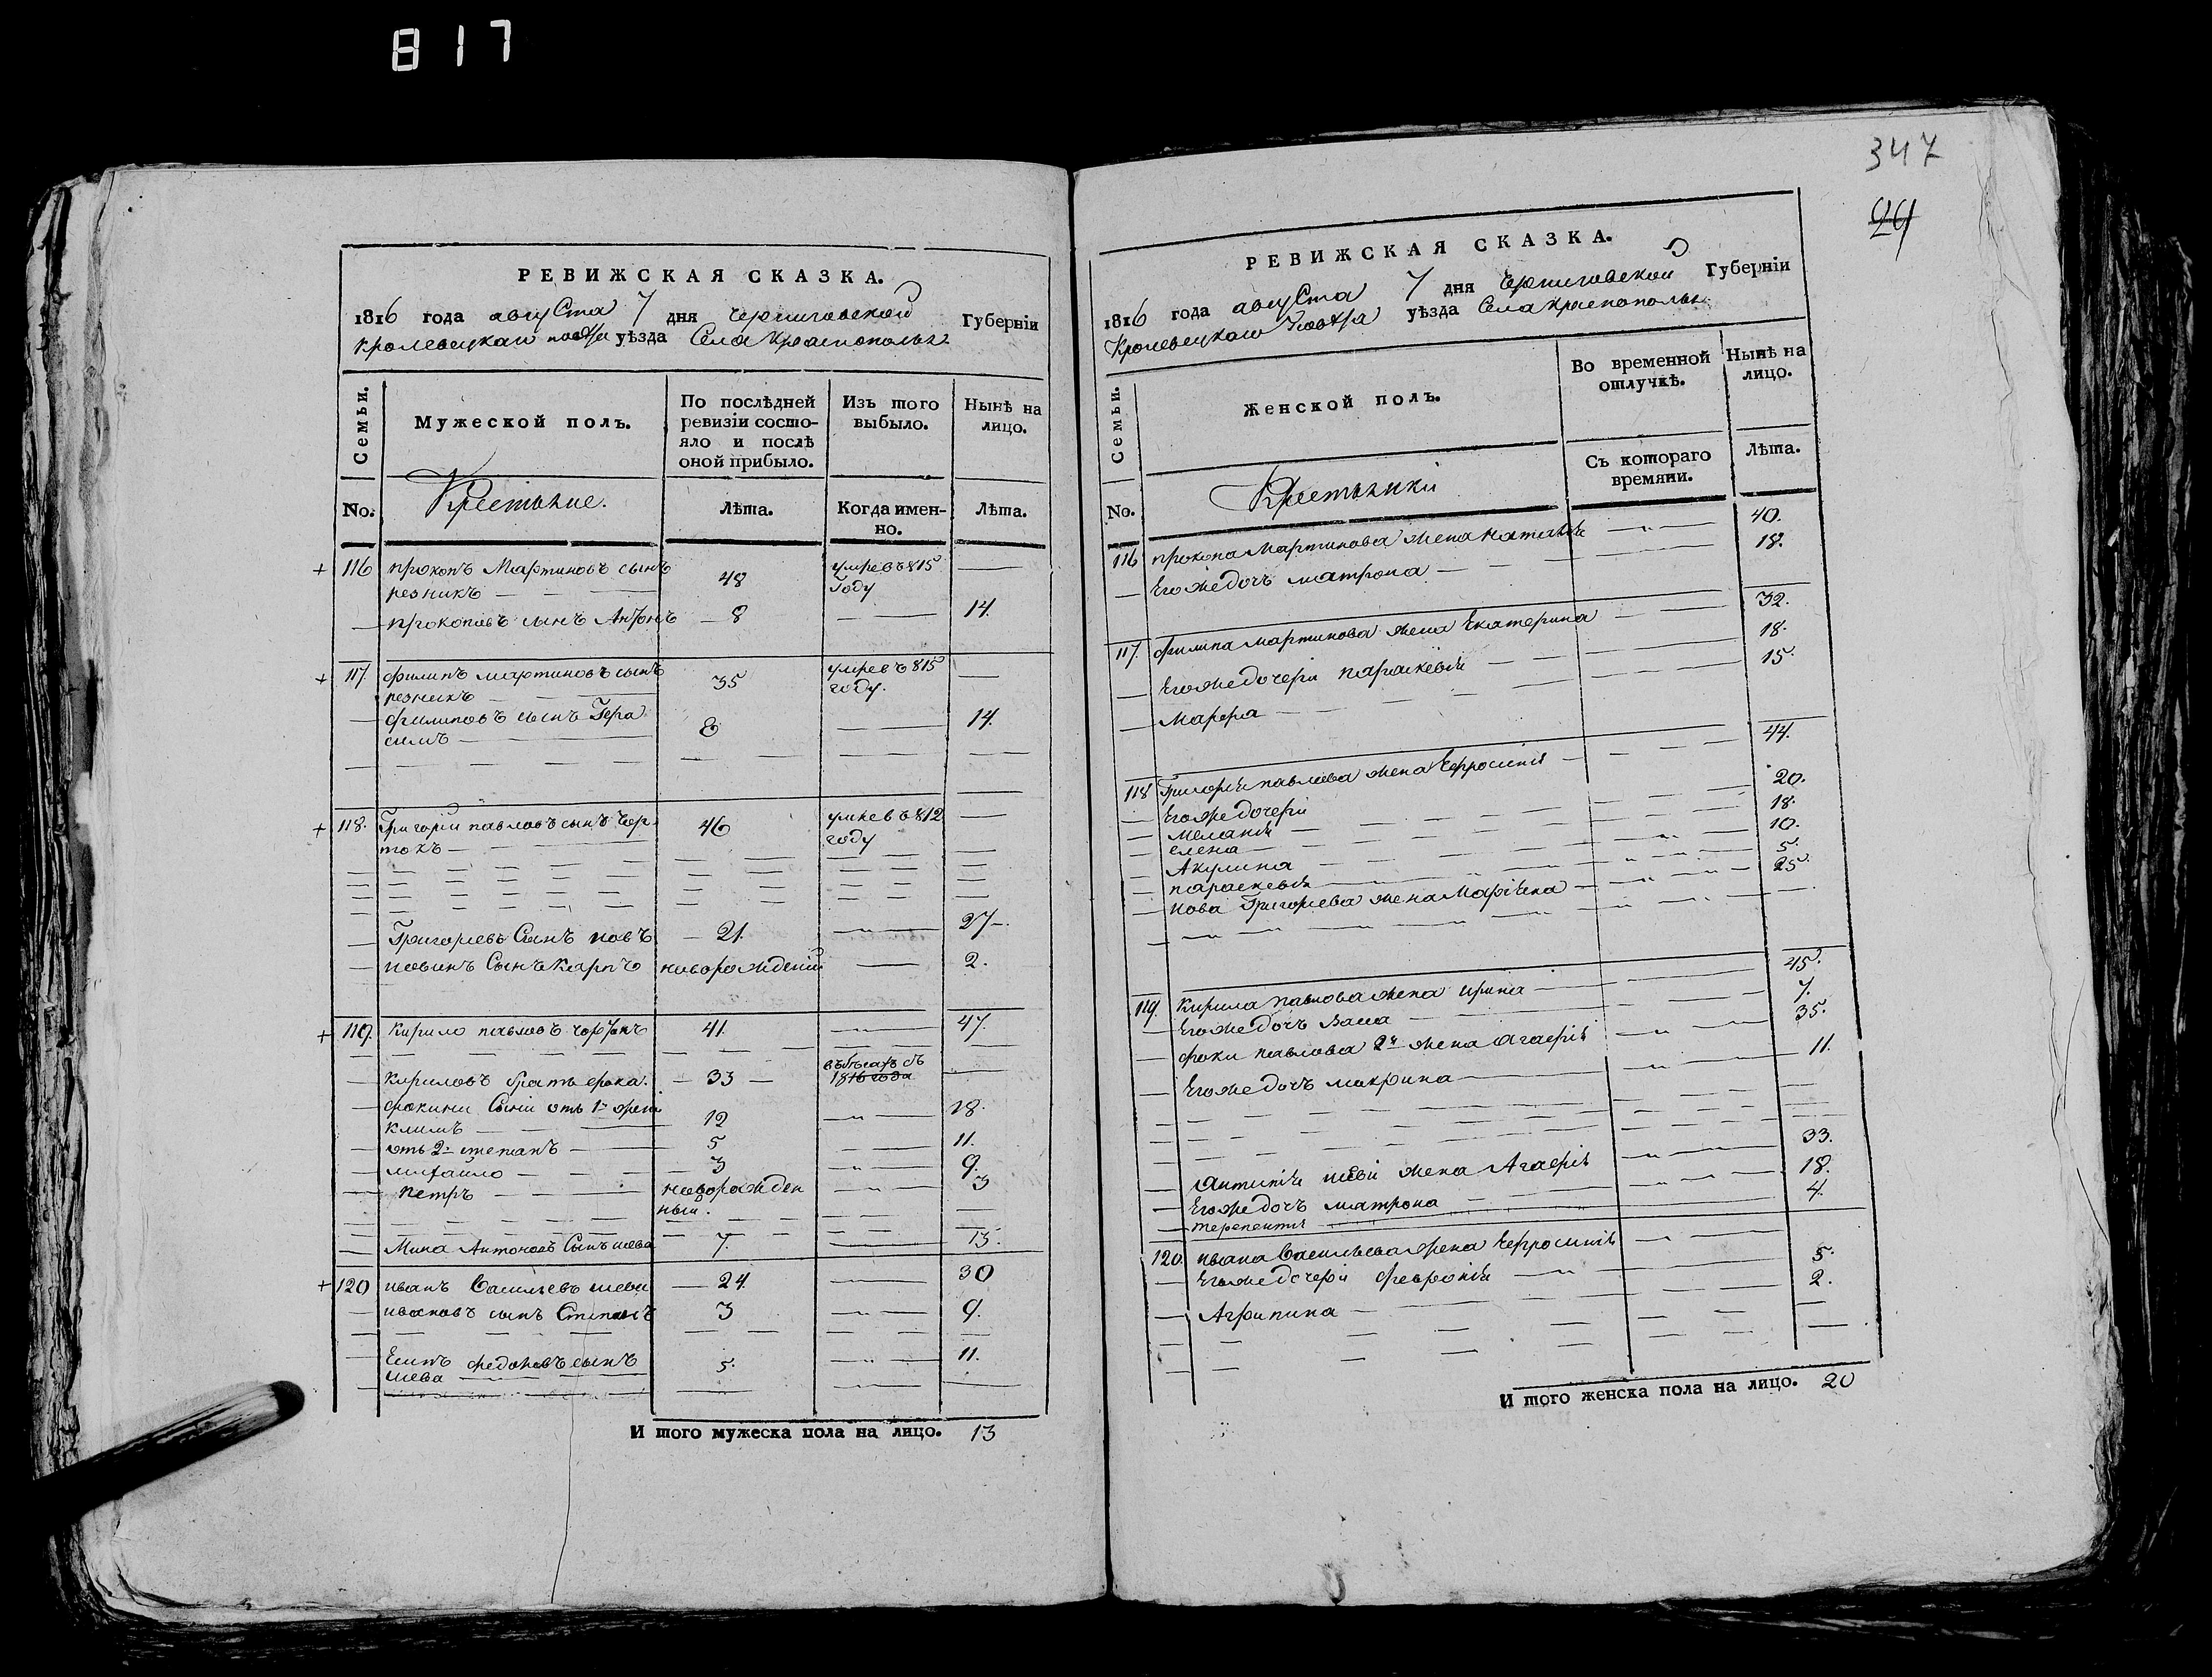 817
347
24
РЕВИЖСКАЯ СКАЗКА.
1816 года августа 7 дня черниговской Губерніи
кролевецкаго повѣта уѣзда Села Краснополья
Семьи.
Мужеской полъ.
По послѣдней ревизіи состо-
яло и послѣ
оной прибыло.
Изъ того
выбыло.
Нынѣ на
лицо.
No.
Крестьяне.
Лѣта.
Когда имен-
но.
Лѣта.
116 прокопъ Мартиновъ сынъ 48 умре въ 815
резникъ году
прокоповъ сынъ Антонъ 8 14.
117. филипъ мартиновъ сынъ 35 умре въ 815
резникъ году.
филиповъ сынъ Гера 8 14.
симъ
118. Григорій павловъ сынъ Чор 46 умре въ 812
токъ году
Григорьевъ Сынъ 21. 27
Сынъ Карпъ новорожденій 2.
119. Кирило павловъ 41. 47.
Кириловъ братъ фока. 33
1816 года
фокини Сыни отъ 1й жени
климъ 12 18.
отъ 2й степанъ 5 11.
михайло 3 9.
петръ новорожден 3
ный.
Мина Антоновъ Сынъ шева 7. 13.
120 иванъ Васильевъ шева 24. 30
ивановъ сынъ Степанъ 3 9.
Есипъ федоровъ сынъ 5. 11.
шева
И того мужеска пола на лицо. 13
РЕВИЖСКАЯ СКАЗКА.
1816 года августа 7 дня черниговской Губерніи
Кролевецкаго повѣта уѣзда Села Краснополья
Семьи.
Женской полъ.
Во временной
отлучкѣ.
Нынѣ на
лицо.
Съ котораго
времяни.
Лѣта.
No.
Крестьянки
116 прокопа Мартинова жена Наталья 40.
Его же дочь матрона 18.
117. филипа мартинова жена Екатерина 32.
Его же дочери параскевія 18.
Марфа 15.
118 Григорія павлова жена Ефросинія 44.
Его же дочери
меланія 20.
елена 18.
Акулина 10.
параскевія 5.
Григорьева жена 25
119. Кирила павлова жена ирина 45.
Его же дочь 7.
фоки павлова 2я жена Агафія 35.
Его же дочь макрина 11.
жена Агафія 33.
Его же дочь матрона 18.
4.
120. ивана Васильева жена Ефросинія
Его же дочери феvронія 5.
Агрипина 2.
И того женска пола на лицо. 20